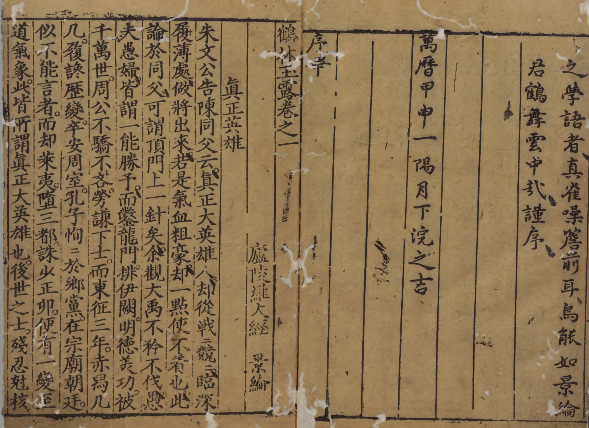 之學語者真雀噪簷前耳烏能如景綸
君鶴舞雲中哉謹序
萬曆甲申一陽月下浣之吉
序畢
鶴林玉露卷之一
廬陵羅大經 景綸
真正英雄
朱文公告陳同父云真正大英雄人却從戰戰競競臨深
履薄處做將出來若是氣血粗豪却一點使不着也此
論於同父可謂頂門上一針矣余觀大禹不矜不伐愚
夫愚婦皆謂一能勝予而鑿龍門排伊闕明德美功被
千萬世周公不驕不吝勞謙下士而東征三年赤舄几
几履讒歷變卒安周室孔子恂恂於鄉黨在宗廟朝廷
似不能言者而却萊夷墮三都誅少正卯便有一變至
道氣象此皆所謂真正大英雄也後世之士殘忍尅核